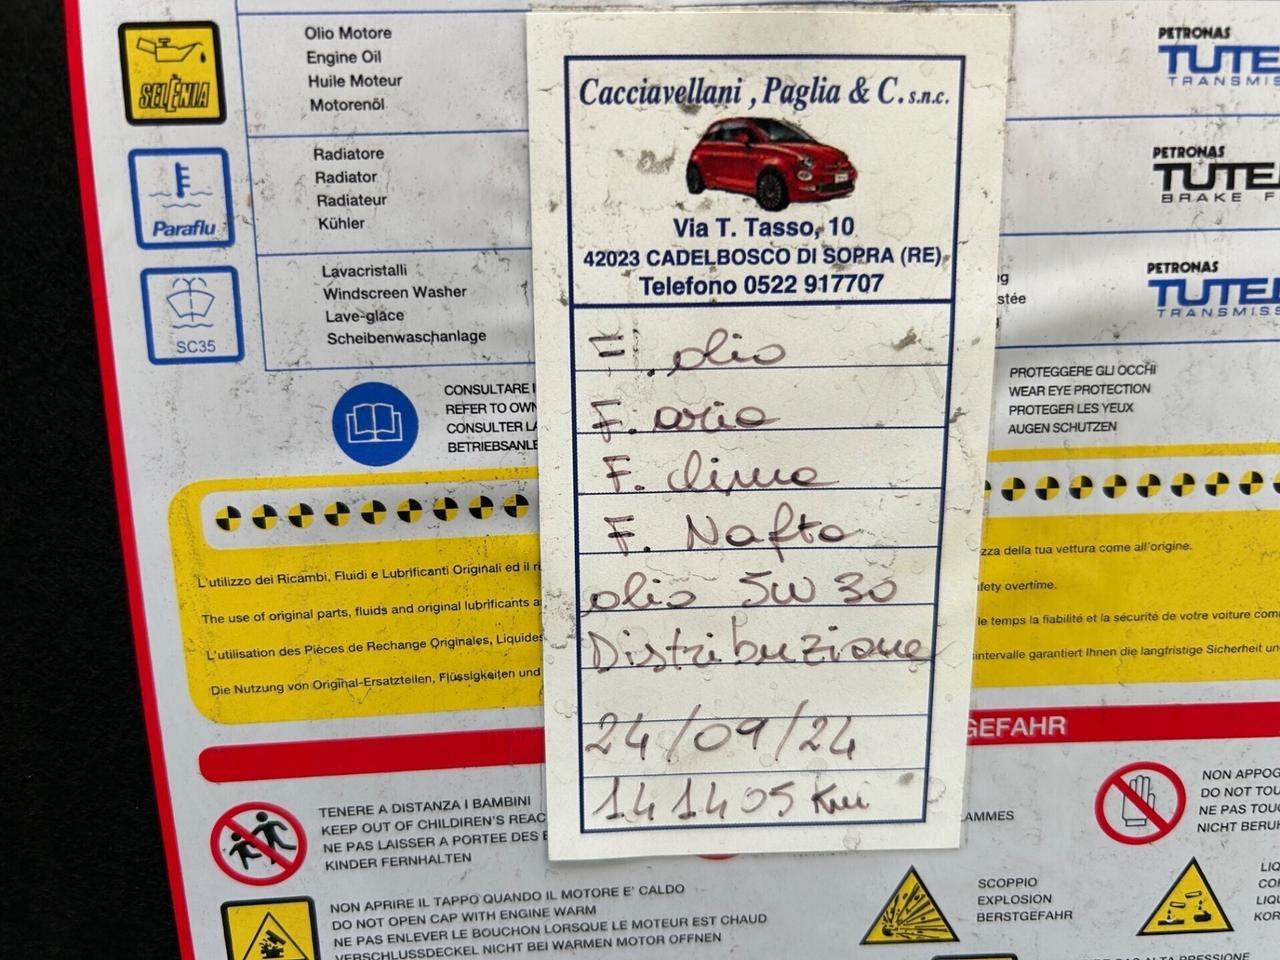 SELÈNIA
Olio Motore
Engine Oil
Huile Moteur
Motorenöl
Paraflu
Radiatore
Radiator
Radiateur
Kühler
SC35
Lavacristalli
Windscreen Washer
Lave-glace
Scheibenwaschanlage
CONSULTARE
REFER TO OWN
CONSULTER LA
BETRIEBSANLE
Cacciavellani, Paglia & C. s.n.c.
Via T. Tasso, 10
42023 CADELBOSCO DI SOPRA (RE)
Telefono 0522 917707
F. olio
F. aria
F. clima
F. Nafta
olio 5W 30
Distribuzione
24/09/24
141405 Km
PETRONAS
TUTE
TRANSMIS
PETRONAS
TUTE
BRAKE F
PETRONAS
TUTE
TRANSMIS
stée
PROTEGGERE GLI OCCHI
WEAR EYE PROTECTION
PROTEGER LES YEUX
AUGEN SCHUTZEN
L'utilizzo dei Ricambi, Fluidi e Lubrificanti Originali ed il
zza della tua vettura come all'origine.
The use of original parts, fluids and original lubrificants
fety overtime.
L'utilisation des Pièces de Rechange Originales, Liquides
le temps la fiabilité et la sécurité de votre voiture com
Die Nutzung von Original-Ersatzteilen, Flüssigkeiten und
intervalle garantiert Ihnen die langfristige Sicherheit un
GEFAHR
TENERE A DISTANZA I BAMBINI
KEEP OUT OF CHILDREN'S REAC
NE PAS LAISSER A PORTEE DES E
KINDER FERNHALTEN
AMMES
NON APPOG
DO NOT TOU
NE PAS TOUC
NICHT BERUH
NON APRIRE IL TAPPO QUANDO IL MOTORE E' CALDO
DO NOT OPEN CAP WITH ENGINE WARM
NE PAS ENLEVER LE BOUCHON LORSQUE LE MOTEUR EST CHAUD
VERSCHLUSSDECKEL NICHT BEI WARMEN MOTOR OFFNEN
SCOPPIO
EXPLOSION
BERSTGEFAHR
LIQ
COR
LIQU
KOR